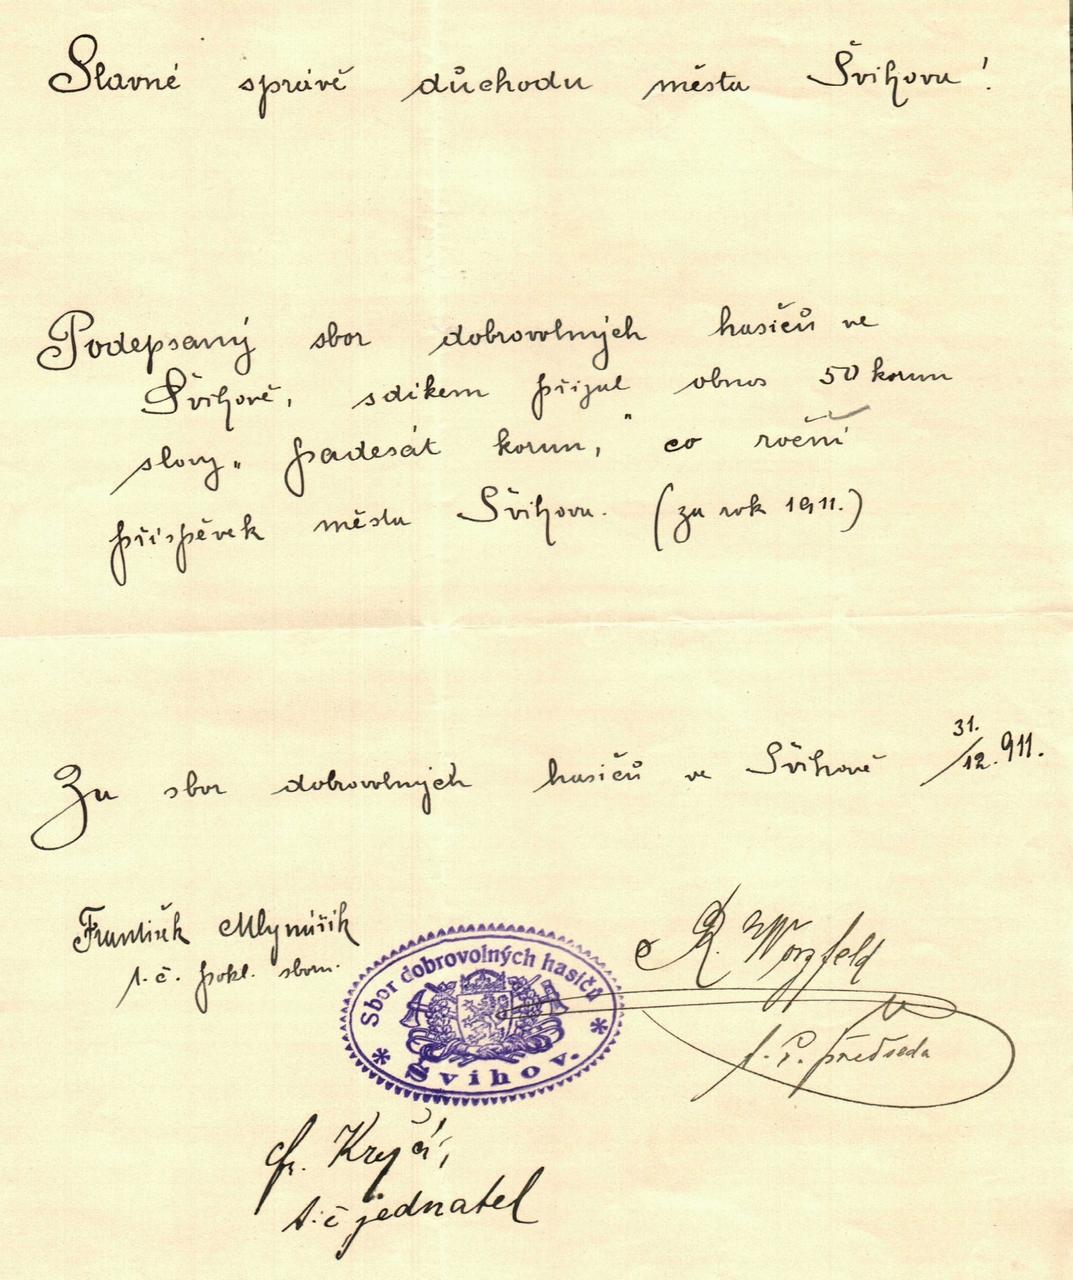 Slavné správě důchodu města Švihova!
Podepsaný sbor dobrovolných hasičů ve
Švihově, s díkem přijal obnos 50 korun
slovy „padesát korun," co roční
příspěvek města Švihova. (za rok 1911.)
Za sbor dobrovolných hasičů ve Švihově 31./12. 911.
František Mlynářík
t. č. pokl. sboru.
R. Wörzfeld
t. č. předseda
Sbor dobrovolných hasičů
* Švihov. *
Fr. Krejčí,
t. č. jednatel